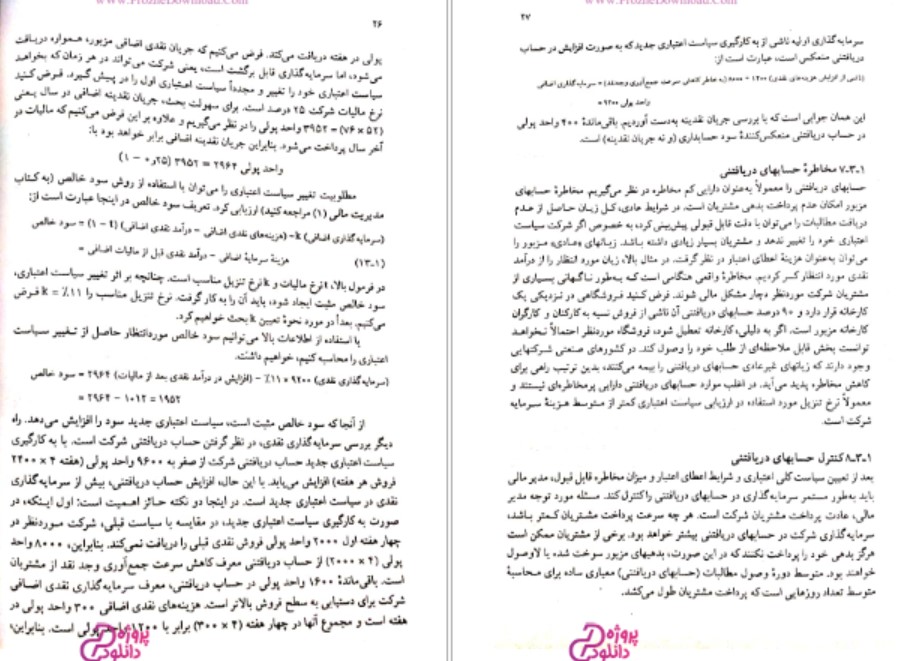 www.ProzheDownload.com
۲۶
پولی در هفته دریافت می‌کند. فرض می‌کنیم که جریان نقدی اضافی مزبور، همواره دریافت
می‌شود، اما سرمایه‌گذاری قابل برگشت است، یعنی شرکت می‌تواند در هر زمان که بخواهد
سیاست اعتباری خود را تغییر و مجدداً سیاست اعتباری اول را در پیش گیرد. فرض کنید
نرخ مالیات شرکت ۲۵ درصد است. برای سهولت بحث، جریان نقدینه اضافی در سال یعنی
(۵۲ × ۷۶) = ۳۹۵۲ واحد پولی را در نظر می‌گیریم و علاوه بر این فرض می‌کنیم که مالیات در
آخر سال پرداخت می‌شود. بنابراین جریان نقدینه اضافی برابر خواهد بود با:
واحد پولی ۲۹۶۴ = ۳۹۵۲ (۰٫۲۵ − ۱)
مطلوبیت تغییر سیاست اعتباری را می‌توان با استفاده از روش سود خالص (به کتاب
مدیریت مالی (۱) مراجعه کنید) ارزیابی کرد. تعریف سود خالص در اینجا عبارت است از:
(سرمایه‌گذاری اضافی) k− (هزینه‌های نقدی اضافی − درآمد نقدی اضافی) (t − ۱) = سود خالص
(۱-۱۳) هزینهٔ سرمایهٔ اضافی − درآمد نقدی قبل از مالیات اضافی =
در فرمول بالا، t نرخ مالیات و k نرخ تنزیل مناسب است. چنانچه بر اثر تغییر سیاست اعتباری،
سود خالص مثبت ایجاد شود، باید آن را به کار گرفت. نرخ تنزیل مناسب را ۱۱٪ = k فرض
می‌کنیم. بعداً در مورد نحوهٔ تعیین k بحث خواهیم کرد.
با استفاده از اطلاعات بالا می‌توانیم سود خالص موردانتظار حاصل از تغییر سیاست
اعتباری را محاسبه کنیم، خواهیم داشت.
(سرمایه‌گذاری نقدی) ۹۲۰۰ × ۱۱٪ − (افزایش در درآمد نقدی بعد از مالیات) ۲۹۶۴ = سود خالص
= ۲۹۶۴ − ۱۰۱۲ = ۱۹۵۲
از آنجا که سود خالص مثبت است، سیاست اعتباری جدید سود را افزایش می‌دهد. راه
دیگر بررسی سرمایه‌گذاری نقدی، در نظر گرفتن حساب دریافتنی شرکت است. با به کارگیری
سیاست اعتباری جدید حساب دریافتنی شرکت از صفر به ۹۶۰۰ واحد پولی (هفته ۴ × ۲۴۰۰
فروش هر هفته) افزایش می‌یابد. با این حال، افزایش حساب دریافتنی، بیش از سرمایه‌گذاری
نقدی در سیاست اعتباری جدید است. در اینجا دو نکته حائز اهمیت است: اول اینکه، در
صورت به کارگیری سیاست اعتباری جدید، در مقایسه با سیاست قبلی، شرکت موردنظر در
چهار هفته اول ۲۰۰۰ واحد پولی فروش نقدی قبلی را دریافت نمی‌کند. بنابراین، ۸۰۰۰ واحد
پولی (۴ × ۲۰۰۰) از حساب دریافتنی معرف کاهش سرعت جمع‌آوری وجه نقد از مشتریان
است. باقی‌ماندهٔ ۱۶۰۰ واحد پولی در حساب دریافتنی، معرف سرمایه‌گذاری نقدی اضافی
شرکت برای دستیابی به سطح فروش بالاتر است. هزینه‌های نقدی اضافی ۳۰۰ واحد پولی در
هفته است و مجموع آنها در چهار هفته (۴ × ۳۰۰) برابر با ۱۲۰۰ واحد پولی است. بنابراین،
پروژه
دانلود
www.ProzheDownload.com
۲۷
سرمایه‌گذاری اولیه ناشی از به کارگیری سیاست اعتباری جدید که به صورت افزایش در حساب
دریافتنی منعکس است، عبارت است از:
(ناشی از افزایش هزینه‌های نقدی) ۱۲۰۰ + ۸۰۰۰ (به خاطر کاهش سرعت جمع‌آوری وجه نقد) = سرمایه‌گذاری اضافی
واحد پولی ۹۲۰۰ =
این همان جوابی است که با بررسی جریان نقدینه به‌دست آوردیم. باقی‌ماندهٔ ۴۰۰ واحد پولی
در حساب دریافتنی منعکس‌کنندهٔ سود حسابداری (و نه جریان نقدینه) است.
۱-۳-۷ مخاطرهٔ حسابهای دریافتنی
حسابهای دریافتنی را معمولاً به‌عنوان دارایی کم مخاطره در نظر می‌گیریم. مخاطرهٔ حسابهای
مزبور امکان عدم پرداخت بدهی مشتریان است. در شرایط عادی، کل زیان حاصل از عدم
دریافت مطالبات را می‌توان با دقت قابل قبولی پیش‌بینی کرد، به خصوص اگر شرکت سیاست
اعتباری خود را تغییر ندهد و مشتریان بسیار زیادی داشته باشد. زیانهای «عادی» مزبور را
می‌توان به‌عنوان هزینهٔ اعطای اعتبار در نظر گرفت. در مثال بالا، زیان مورد انتظار را از درآمد
نقدی مورد انتظار کسر کردیم. مخاطرهٔ واقعی هنگامی است که به‌طور ناگهانی بسیاری از
مشتریان شرکت موردنظر دچار مشکل مالی شوند. فرض کنید فروشگاهی در نزدیکی یک
کارخانه قرار دارد و ۹۰ درصد حسابهای دریافتنی آن ناشی از فروش نسیه به کارکنان و کارگران
کارخانه مزبور است. اگر به دلیلی، کارخانه تعطیل شود، فروشگاه موردنظر احتمالاً نخواهد
توانست بخش قابل ملاحظه‌ای از طلب خود را وصول کند. در کشورهای صنعتی شرکتهایی
وجود دارند که زیانهای غیرعادی حسابهای دریافتنی را بیمه می‌کنند، بدین ترتیب راهی برای
کاهش مخاطره پدید می‌آید. در اغلب موارد حسابهای دریافتنی دارایی پرمخاطره‌ای نیستند و
معمولاً نرخ تنزیل مورد استفاده در ارزیابی سیاست اعتباری کمتر از متوسط هزینهٔ سرمایه
شرکت است.
۱-۳-۸ کنترل حسابهای دریافتنی
بعد از تعیین سیاست کلی اعتباری و شرایط اعطای اعتبار و میزان مخاطره قابل قبول، مدیر مالی
باید به‌طور مستمر سرمایه‌گذاری در حسابهای دریافتنی را کنترل کند. مسئله مورد توجه مدیر
مالی، عادت پرداخت مشتریان شرکت است. هر چه سرعت پرداخت مشتریان کمتر باشد،
سرمایه‌گذاری شرکت در حسابهای دریافتنی بیشتر خواهد بود. برخی از مشتریان ممکن است
هرگز بدهی خود را پرداخت نکنند که در این صورت، بدهیهای مزبور سوخت شده یا لاوصول
خواهند بود. متوسط دورهٔ وصول مطالبات (حسابهای دریافتنی) معیاری ساده برای محاسبهٔ
متوسط تعداد روزهایی است که پرداخت مشتریان طول می‌کشد.
پروژه
دانلود